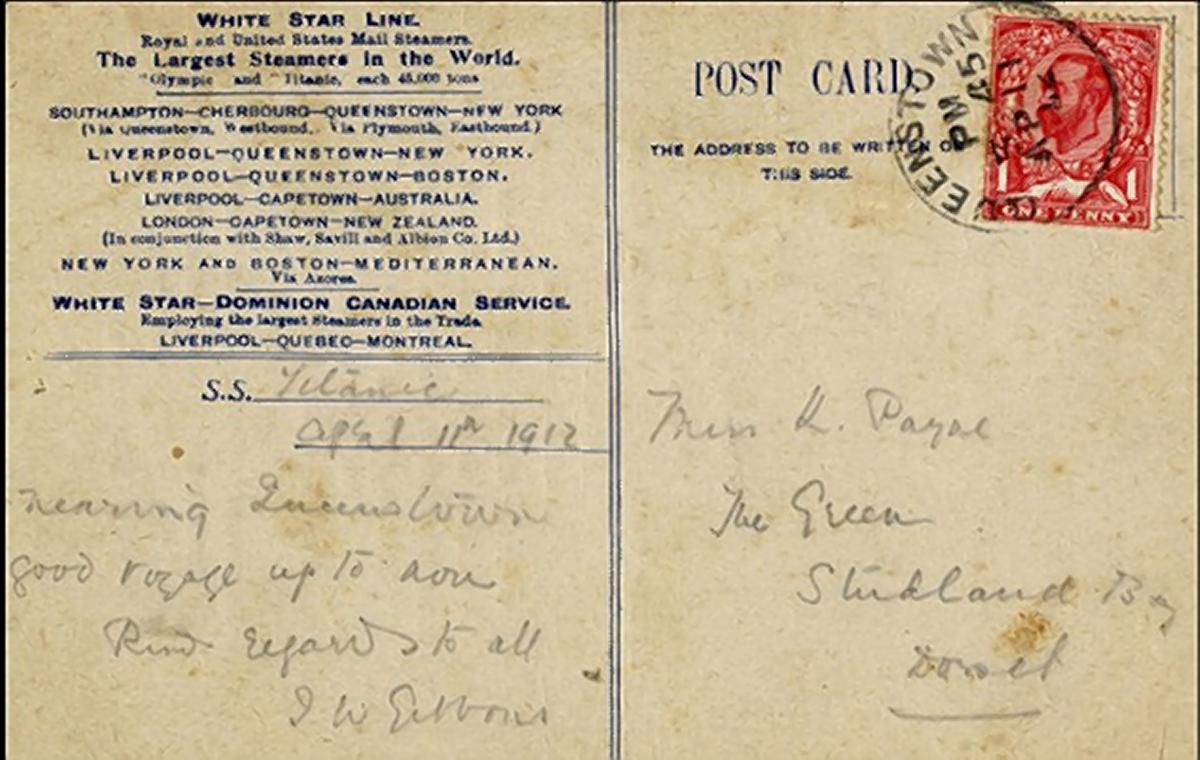 WHITE STAR LINE.
Royal and United States Mail Steamers.
The Largest Steamers in the World.
"Olympic" and "Titanic, each 45,000 tons
SOUTHAMPTON—CHERBOURG—QUEENSTOWN—NEW YORK
(Via Queenstown, Westbound, Via Plymouth, Eastbound.)
LIVERPOOL—QUEENSTOWN—NEW YORK.
LIVERPOOL—QUEENSTOWN—BOSTON.
LIVERPOOL—CAPETOWN—AUSTRALIA.
LONDON—CAPETOWN—NEW ZEALAND.
(In conjunction with Shaw, Savill and Albion Co. Ltd.)
NEW YORK AND BOSTON—MEDITERRANEAN.
Via Azores.
WHITE STAR—DOMINION CANADIAN SERVICE.
Employing the largest Steamers in the Trade
LIVERPOOL—QUEBEC—MONTREAL.
S.S. Titanic
April 11th 1912
nearing Queenstown
good voyage up to now
Kind regards to all
J W Gibbons
POST CARD.
THE ADDRESS TO BE WRITTEN ON
THIS SIDE.
QUEENSTOWN
PM
AP 11
1 1
ONE PENNY
Miss K. Payne
The Green
Studland Bay
Dorset